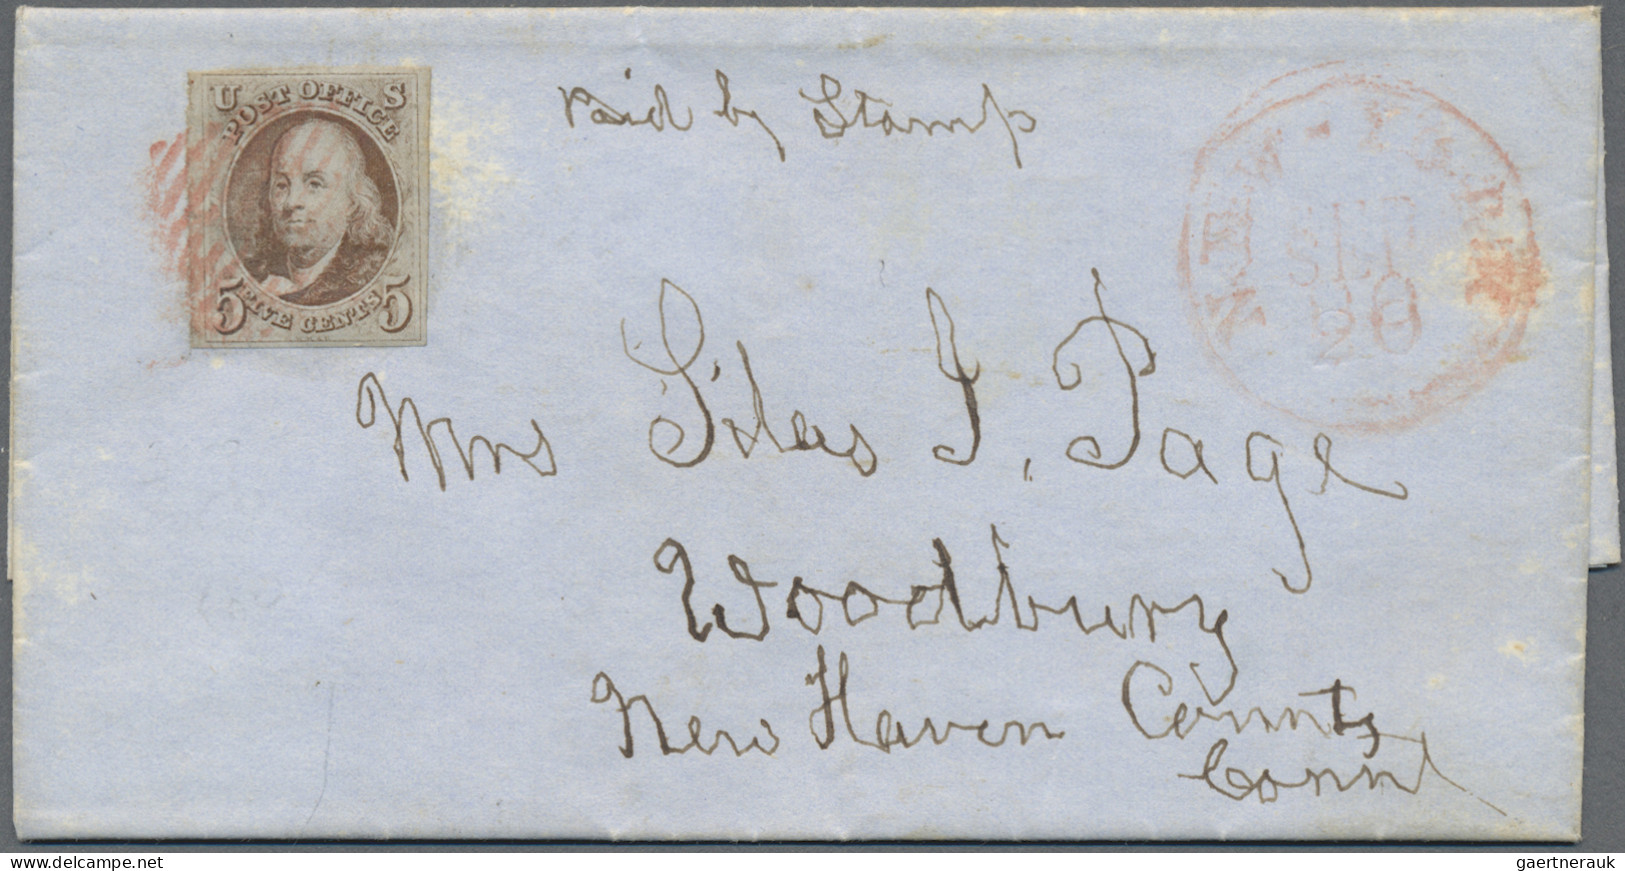 U S
POST OFFICE
5 FIVE CENTS 5
Paid by Stamp
NEW-YORK
SEP
20
Mrs Silas J. Page
Woodbury
New Haven County
Conn
delcampe.net
gaertnerauk